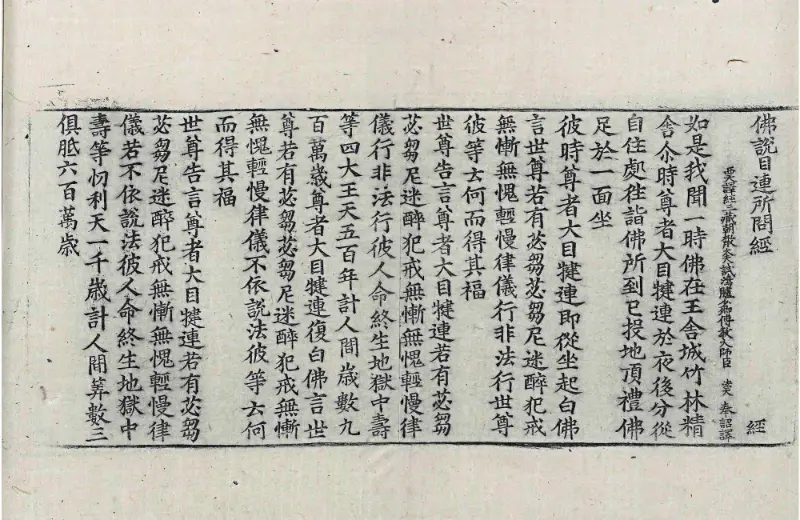 佛說目連所問經 經
西天譯經三藏朝散大夫試鴻臚少卿傳教大師臣 法天 奉 詔譯
如是我聞一時佛在王舍城竹林精
舍尒時尊者大目犍連於夜後分從
自住處徃詣佛所到已投地頂禮佛
足於一面坐
彼時尊者大目犍連即從坐起白佛
言世尊若有苾芻苾芻尼迷醉犯戒
無慚無愧輕慢律儀行非法行世尊
彼等云何而得其福
世尊告言尊者大目犍連若有苾芻
苾芻尼迷醉犯戒無慚無愧輕慢律
儀行非法行彼人命終生地獄中壽
等四大王天五百年計人間歲數九
百萬歲尊者大目犍連復白佛言世
尊若有苾芻苾芻尼迷醉犯戒無慚
無愧輕慢律儀不依說法彼等云何
而得其福
世尊告言尊者大目犍連若有苾芻
苾芻尼迷醉犯戒無慚無愧輕慢律
儀若不依說法彼人命終生地獄中
壽等忉利天一千歲計人間筭數三
俱胝六百萬歲